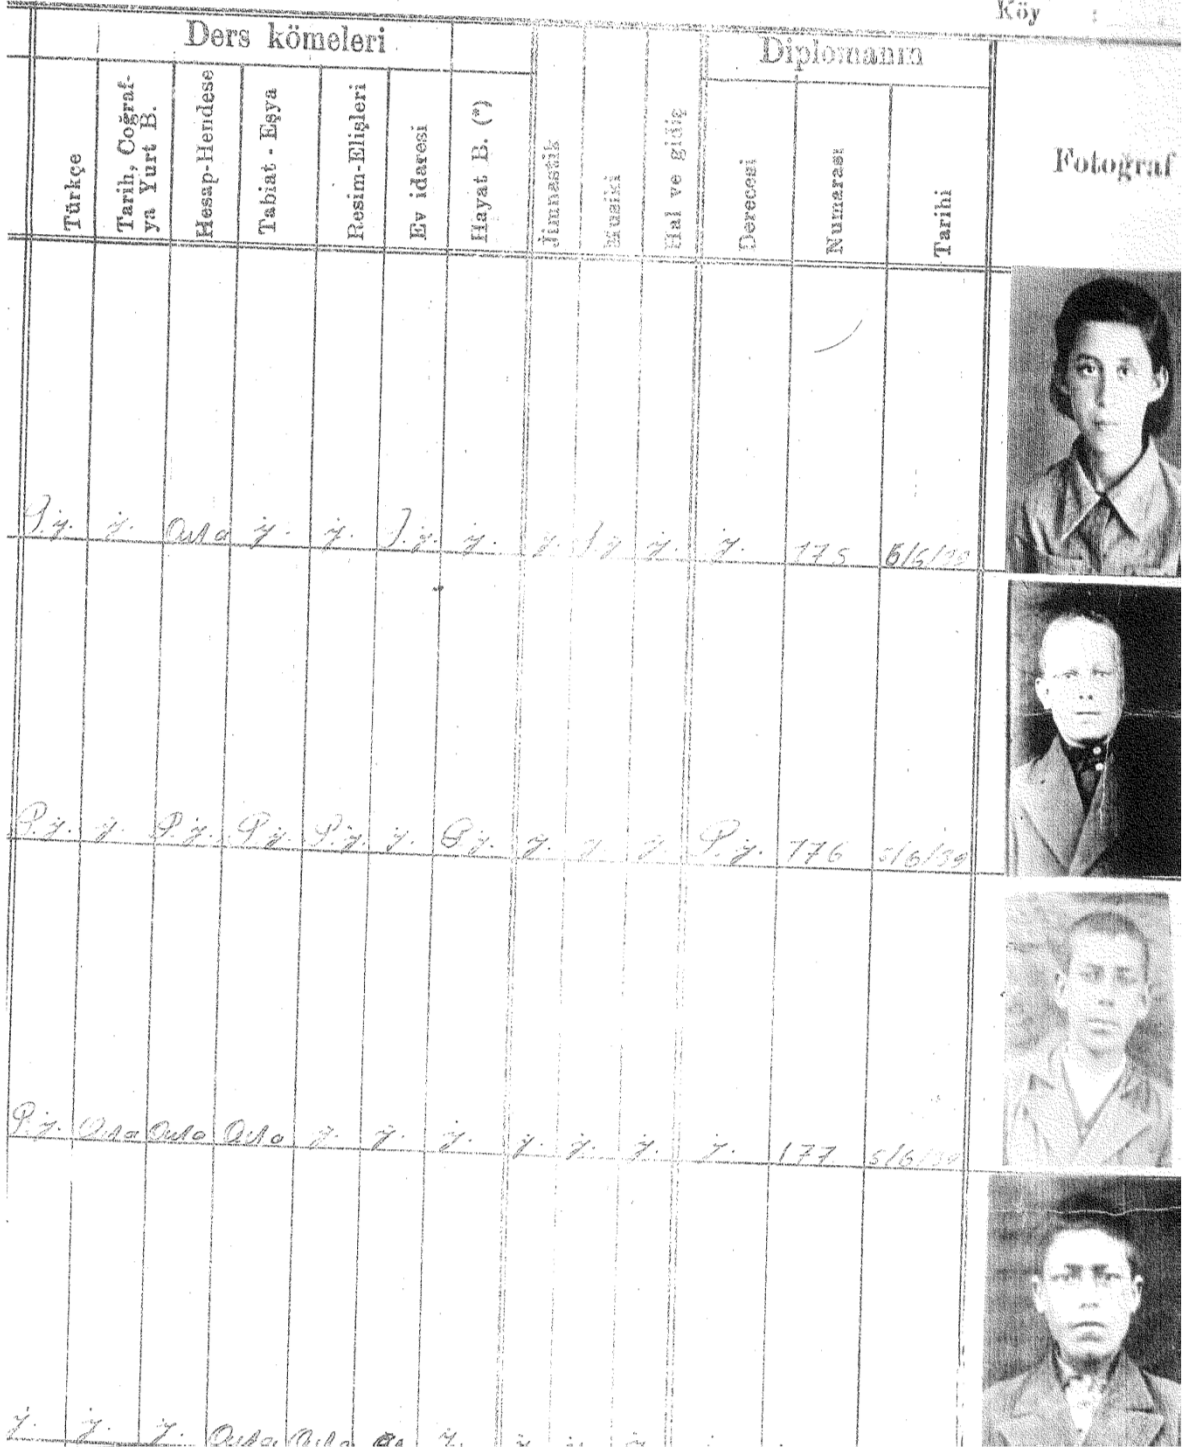 Köy :
Ders kömeleri
Diplomanın
Türkçe
Tarih, Coğraf-
ya Yurt B.
Hesap-Hendese
Tabiat - Eşya
Resim-Elişleri
Ev idaresi
Hayat B. (*)
Jimnastik
Musiki
Hal ve gidiş
Derecesi
Numarası
Tarihi
Fotoğraf
P.y. y. Orta y. y. P.y. y. y. P.y. y. y. 175 5/6/39
P.y. y. P.y. P.y. P.y. y. P.y. y. y. y. P.y. 176 5/6/39
P.y. Orta Orta Orta y. y. y. y. y. y. y. 177 5/6/39
y. y. y. Orta Orta y. y. y. y.